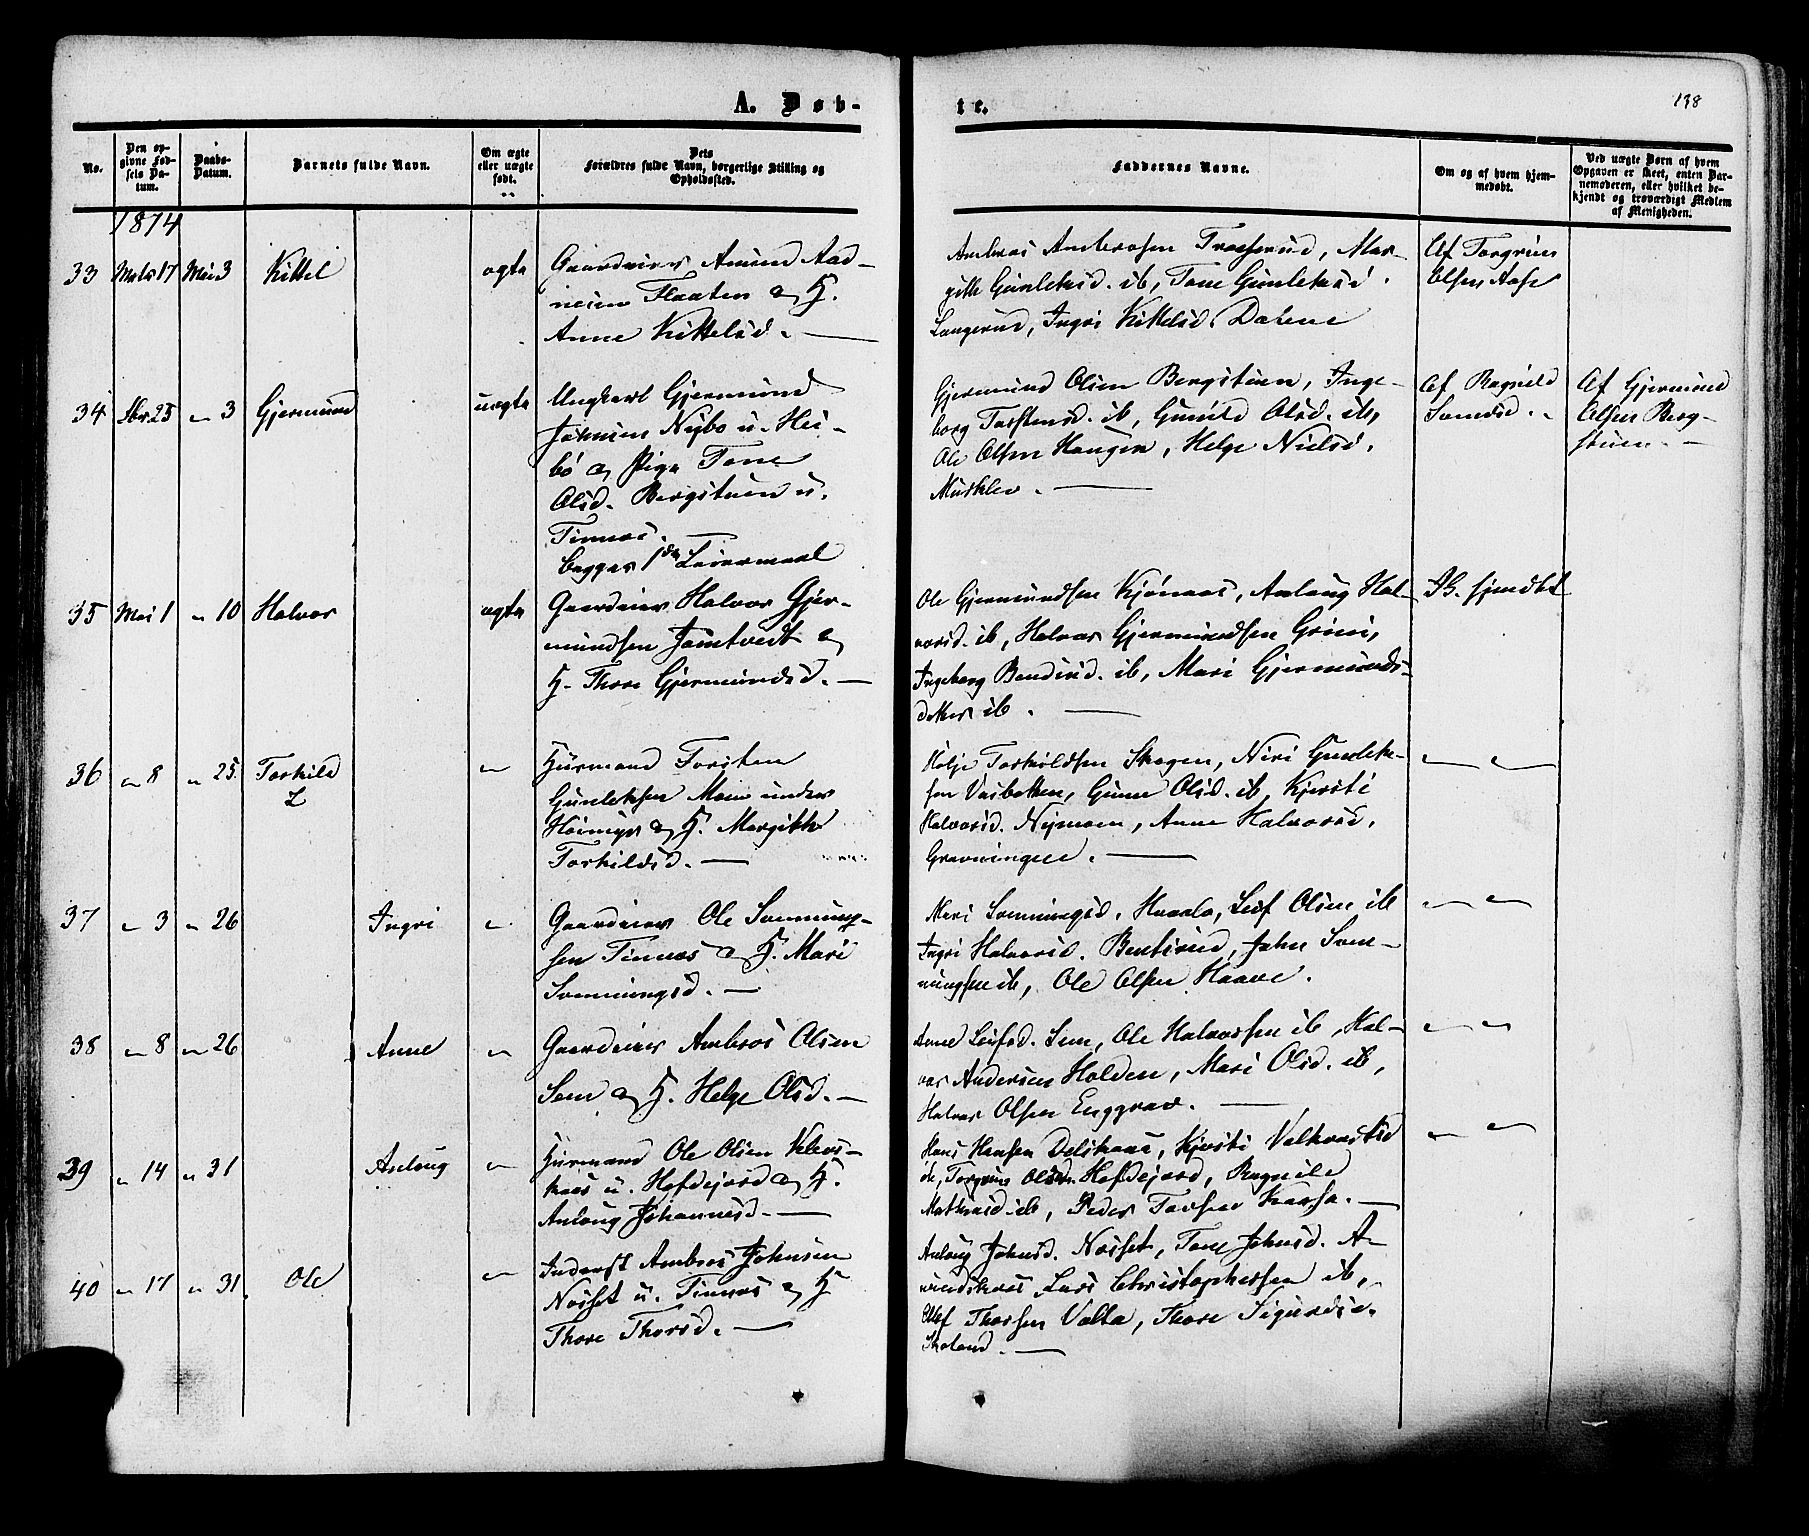 A. Døb-
te.
198
No.
Den op-
givne Fød-
sels Da-
tum.
Daabs-
Datum.
Barnets fulde Navn.
Om ægte
eller uægte
født.
Dets
Forældres fulde Navn, borgerlige Stilling og
Opholdssted.
Faddernes Navne.
Om og af hvem hjem-
medøbt.
Ved uægte Børn af hvem
Opgaven er skeet, enten Bar-
nemoderen, eller hvilket be-
kjendt og troværdigt Medlem
af Menigheden.
1874
33 17 Mai 3 Kittel ægte
Gaardeier Amund Aad-
nesen Flaaten og H.
Anne Kittelsd.
Ambros Ambrosen Mar-
gith Gunleiksd. ib, Tone Gunleiksd.
Langerud, Ingri Kittelsd. Dalene
Af Torgrim
Olsen Aase
34 25 " 3 Gjermund uægte
Ungkarl Gjermund
Johnsen Nybo u. Hei-
bö og Pige Tone
Olsd. Bergstuen u.
Tinnæs.
begges 1ste Leiermaal
Gjermund Olsen Bergstuen, Inge-
borg Torstensd. ib, Gunild Olsd. ib,
Ole Olsen Haugen, Helge Nielsd.
Af Ragnild
Af Gjermund
Olsen Berg-
stuen.
35 Mai 1 " 10 Halvor ægte
Gaardeier Halvor Gjer-
mundsen Jamtvedt og
H. Thore Gjermundsd.
Ole Gjermundsen Kjönaas, Anlaug Hal-
vorsd. ib, Halvor Gjermundsen Grini,
Ingeborg ib, Mari Gjermunds-
datter ib.
Ib. hjemdbt
36 " 8 " 25 Torkild "
Huusmand Torsten
Gunleiksen Moen under
Höimyr og H. Margith
Torkildsd.
Torkildsen Skogen, Gunleik-
sen Vasbotten, Gunne Olsd. ib, Kjersti
Halvorsd. Nymoen, Anne Halvorsd.
Gravningen.
" "
37 " 3 " 26 Ingri "
Gaardeier Ole Sonnung-
sen Tinnæs og H. Mari
Sonnungsd.
Mari Sonnungsd. Leif Olsen ib
Ingri Halvorsd. John Son-
nungsen ib, Ole Olsen Haave.
" "
38 " 8 " 26 Anne "
Gaardeier Ambros Olsen
Sem og H. Helge Olsd.
Anne Leifsd. Sem, Ole Halvorsen ib, Hal-
vor Andersen Holden, Mari Olsd. ib,
Halvor Olsen Enggrav.
" "
39 " 14 " 31 Anlaug "
Huusmand Ole Olsen
u. Hofdejord og H.
Anlaug Johannesd.
Hans Hansen Kjersti
Torgrim Olsen Hofdejord, Ragnild
ib, Peder
" "
40 " 17 " 31 Ole "
Inderst Ambros Johnsen
Næset u. Tinnæs og H
Thore Thorsd.
Anlaug Johnsd. Næset, Tone Johnsd. A-
Lars Christophersen ib,
Thorsen Valla, Thore Sigurdsd.